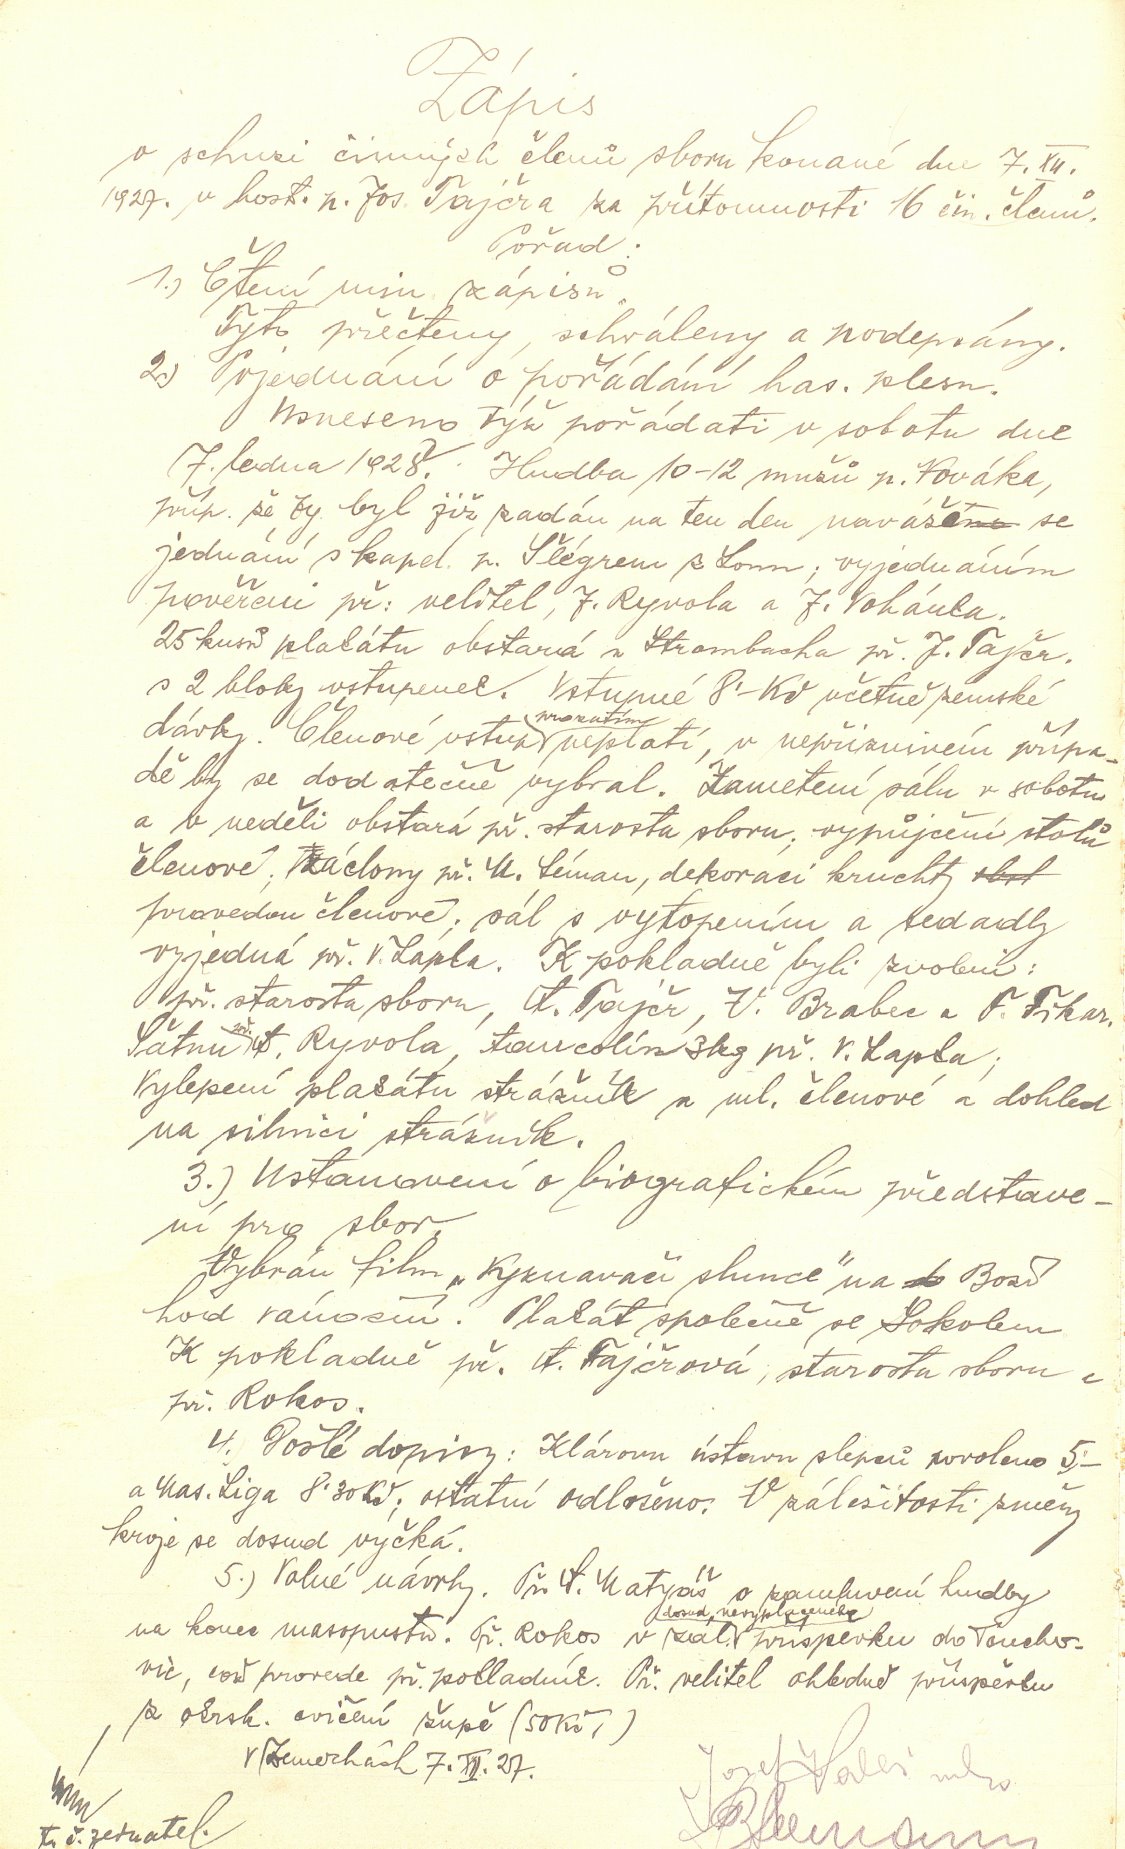 Zápis
o schuzi činných členů sboru konané dne 7. XII.
1927. v host. p. Jos. Tajčra za přítomnosti 16 čin. členů.
Pořad:
1.) Čtení min. zápisů.
Tyto přečteny, schváleny a podepsány.
2.) Pojednání o pořádání has. plesu.
Usneseno týž pořádati v sobotu dne
7. ledna 1928. Hudba 10-12 mužů p. Nováka,
příp. že by byl již zadán na ten den naváže se
jednání s kapel. p. Šlégrem z Loun; vyjednáním
pověřeni př: velitel, J. Ryvola a J. Vohánka.
25 kusů plakátu obstará u Strombacha př. J. Tajčr.
s 2 bloky vstupenek. Vstupné 8·- Kč včetně zemské
dávky. Členové vstup prozatím neplatí, v nepříznivém přípa-
dě by se dodatečně vybral. Zametení sálu v sobotu
a v neděli obstará př. starosta sboru; vypůjčení stolů
členové; záclony př. A. Zéman, dekoraci kruchty
provedou členové; sál s vytopením a sedadly
vyjedná př. V. Lapka. K pokladně byli zvoleni:
př. starosta sboru, A. Tajčr, V. Brabec a F. Fikar.
Šatnu př. A. Ryvola, tancolin 3kg př. V. Lapka;
Vylepení plakátu strážník a ml. členové a dohled
na silnici strážník.
3.) Ustanovení o biografickém představe-
ní pro sbor.
Vybrán film „Vyznavači slunce" na Boží
hod vánoční. Plakát společně se Sokolem
K pokladně př. A. Tajčrová, starosta sboru a
př. Rokos.
4. Došlé dopisy: Klárovu ústavu slepců povoleno 5·-
a Mas. Liga 8·30 Kč; ostatní odloženo. V záležitosti změny
kroje se dosud vyčká.
5.) Volné návrhy. Př. A. Matyáš o zamluvení hudby
na konec masopustu. Př. Rokos v zál. dosud nevyplaceného příspěvku do Toucho-
vic, což provede př. pokladník. Př. velitel ohledně příspěvku
z okrsk. cvičení župě (50Kč)
V Zemechách 7. XII. 27.
t. č. jednatel.
Josef